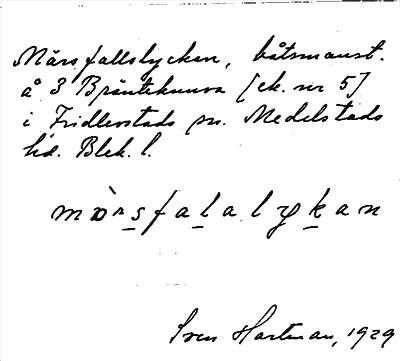 Mårsfallslyckan, båtsmanst.
å 3 Bräntekunva [ek. nr 5]
i Fridlevstads sn. Medelstads
hd. Blek. l.
mɒ̀ʀsfalalykan
Sven Hartman, 1929